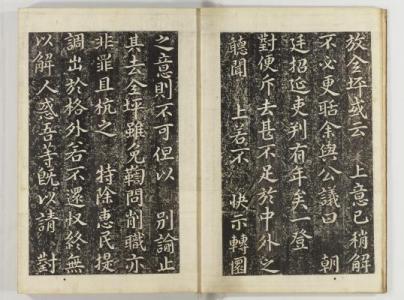 放全坪咸云　上意已稍解
不必更聒余與公議曰　朝
廷招延吏判有年矣一登
對便斥去甚不足於中外之
聽聞　上若不　快示轉圜
之意則不可但以　別諭止
其去全坪雖免鞫問削職亦
非罪且杭之　特除惠民提
調出於格外若不還收終無
以解人惑吾等旣以請　對